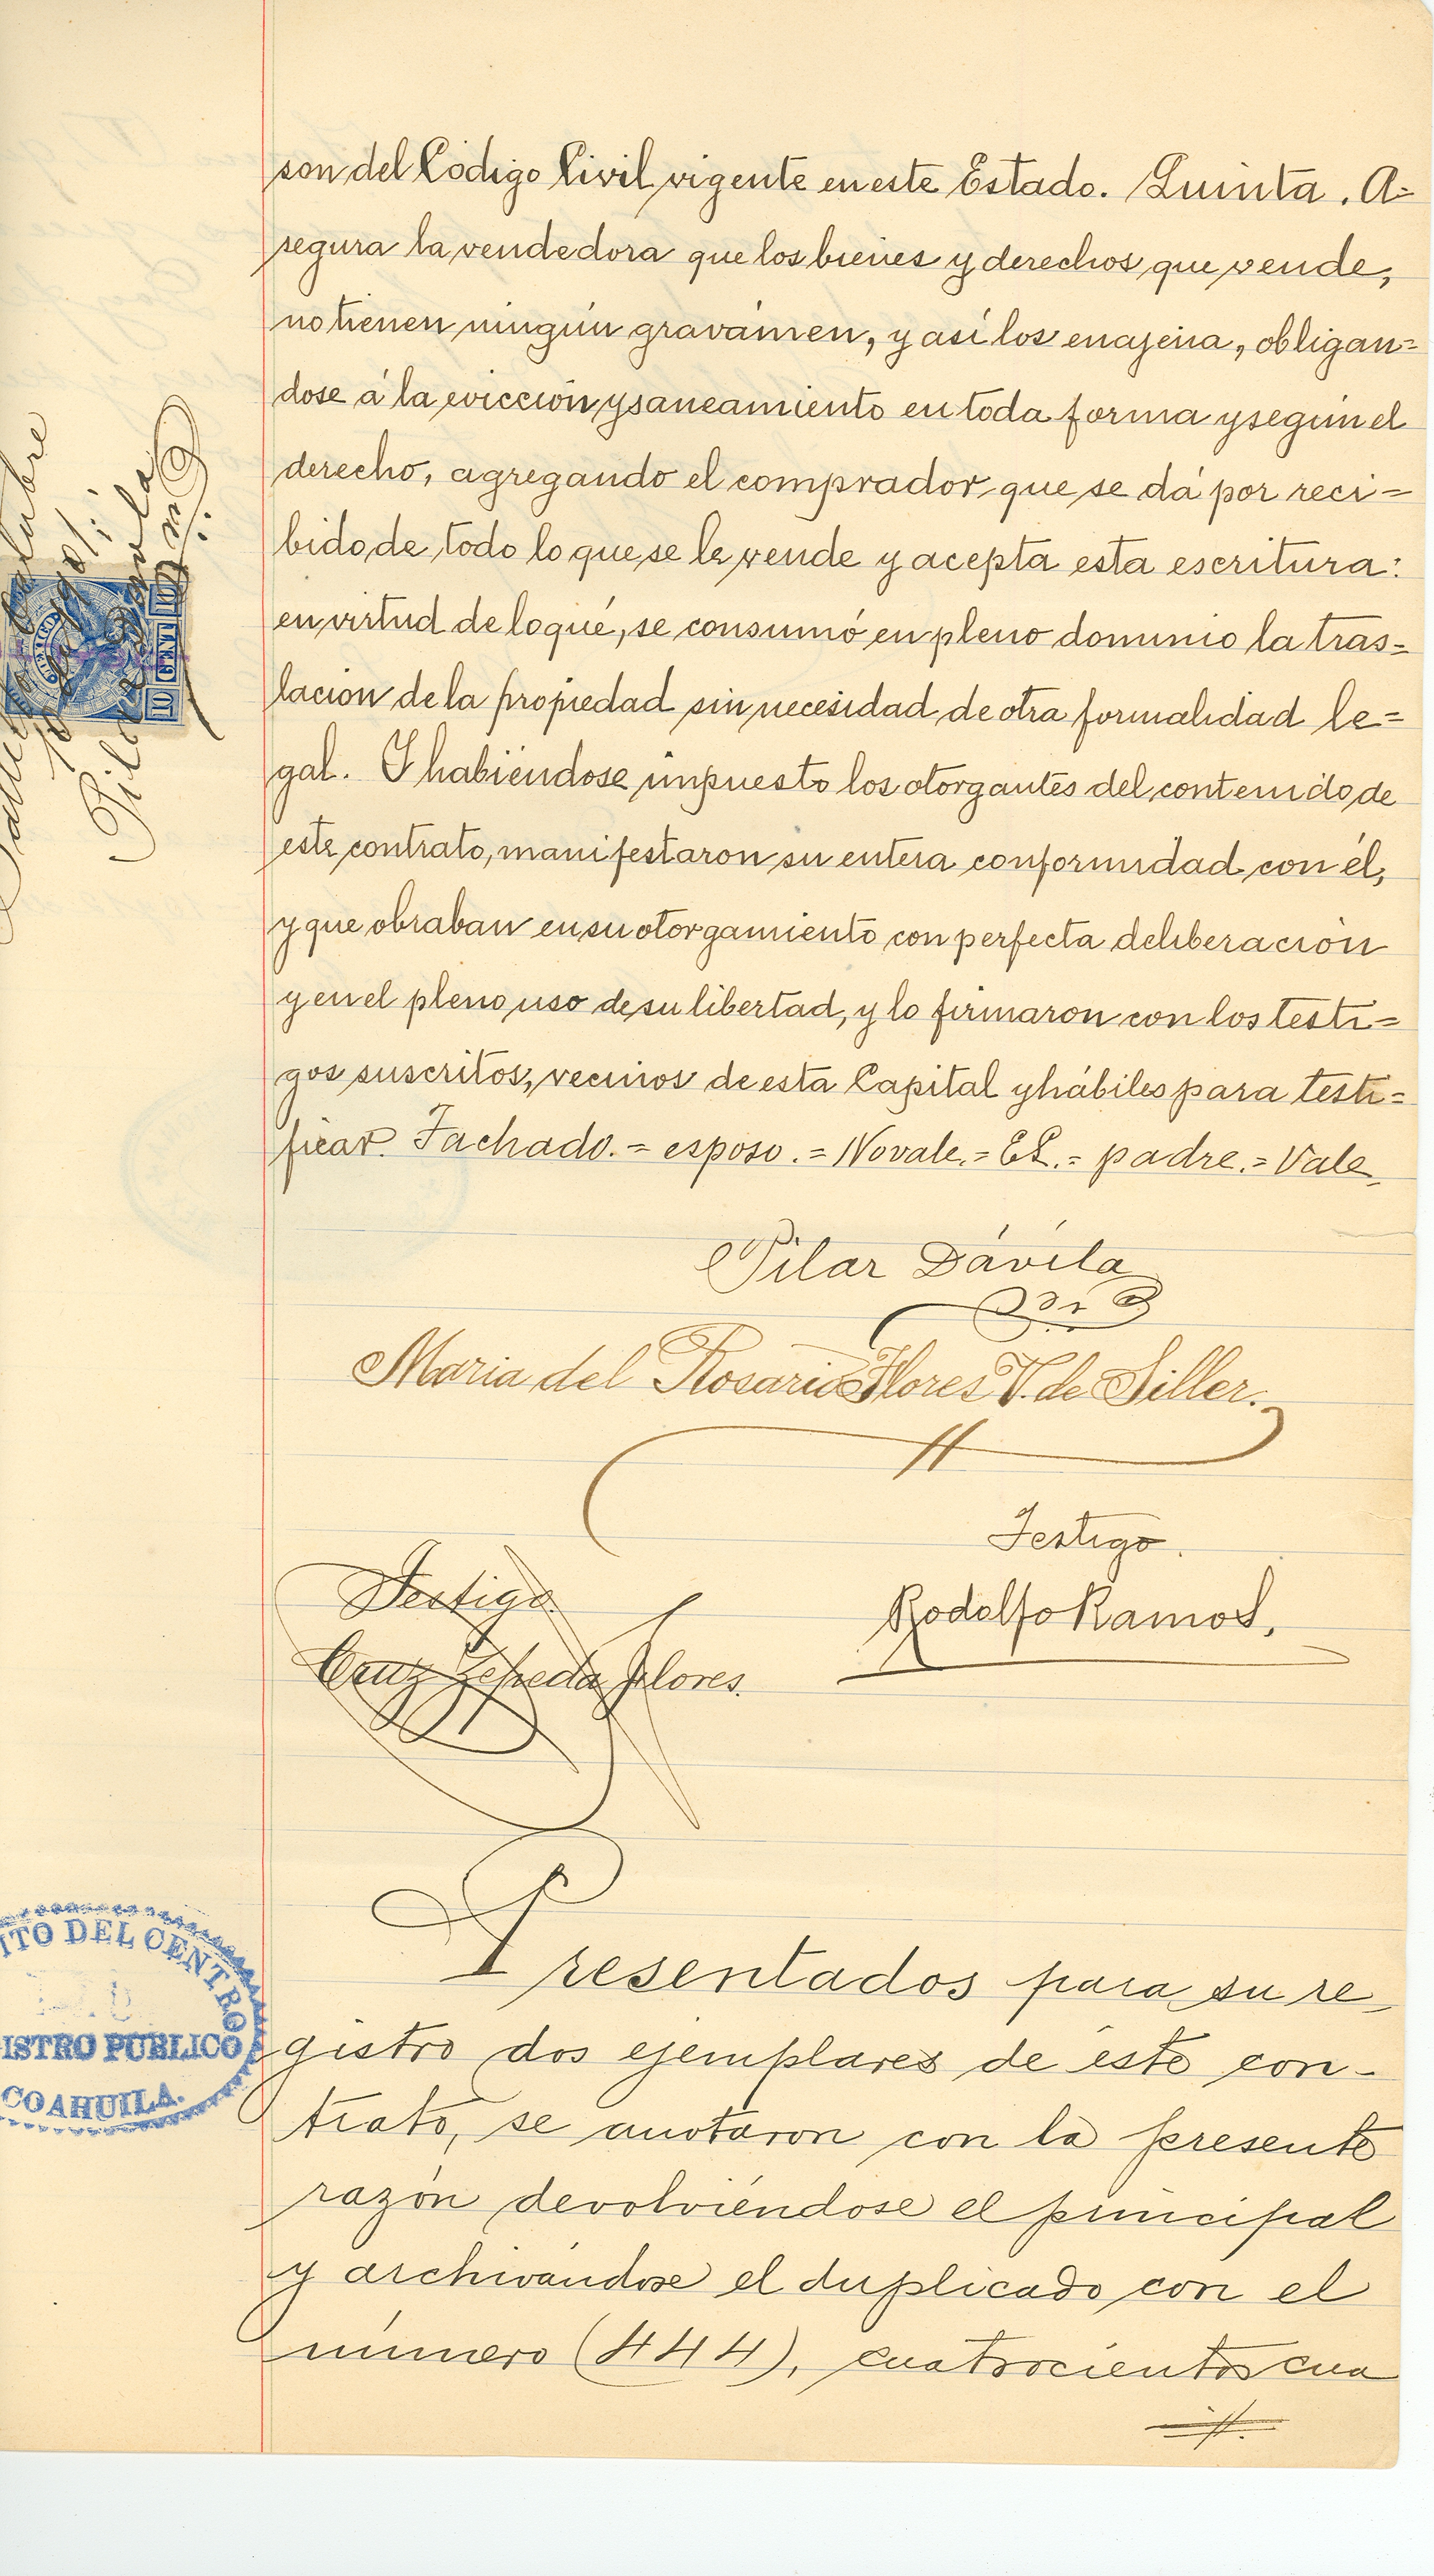 son del Código Civil vigente en este Estado. Quinta. A=
segura la vendedora que los bienes y derechos que vende,
no tienen ningún gravámen, y así los enajena, obligan=
dose á la evicción y saneamiento en toda forma y según el
derecho, agregando el comprador que se dá por reci=
bido de todo lo que se le vende y acepta esta escritura:
en virtud de loqué, se consumó en pleno dominio la tras=
lación de la propiedad sin necesidad de otra formalidad le=
gal. Y habiéndose impuesto los otorgantes del contenido de
este contrato, manifestaron su entera conformidad con él,
y que obraban en su otorgamiento con perfecta deliberación
y en el pleno uso de su libertad, y lo firmaron con los testi=
gos suscritos, vecinos de esta Capital y hábiles para testi=
ficar. Tachado.= esposo.= No vale.= EL.= padre.= Vale.
Pilar Dávila
Maria del Rosario Flores V. de Siller.
Testigo.
Rodolfo Ramos.
Testigo.
Cruz Zepeda Flores.
Presentados para su re-
gistro dos ejemplares de éste con-
trato, se anotaron con la presente
razón devolviéndose el principal
y archivándose el duplicado con el
número (444), cuatrocientos cua
10 CENT 10
ITO DEL CENTRO
ISTRO PUBLICO
COAHUILA.